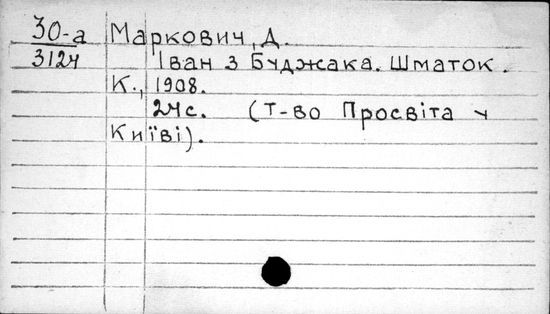 30-а Маркович, Д.
3124 Іван з Буджака. Шматок.
К., 1908.
24с. (Т-во Просвіта у
Київі).